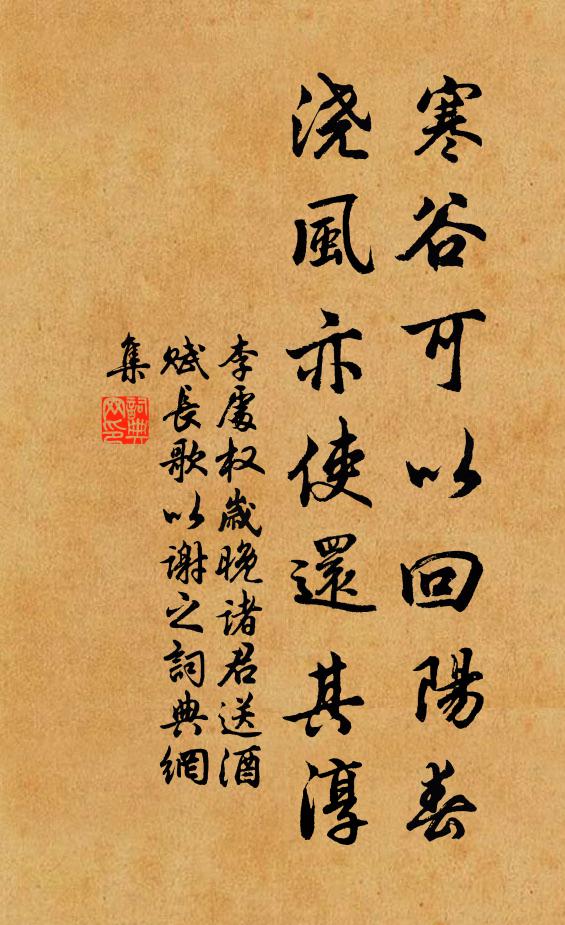 寒谷可以回陽春
浇風亦使還其淳
李處权歲晚诸君送酒
赋長歌以谢之詞典網
集
詞典
网印